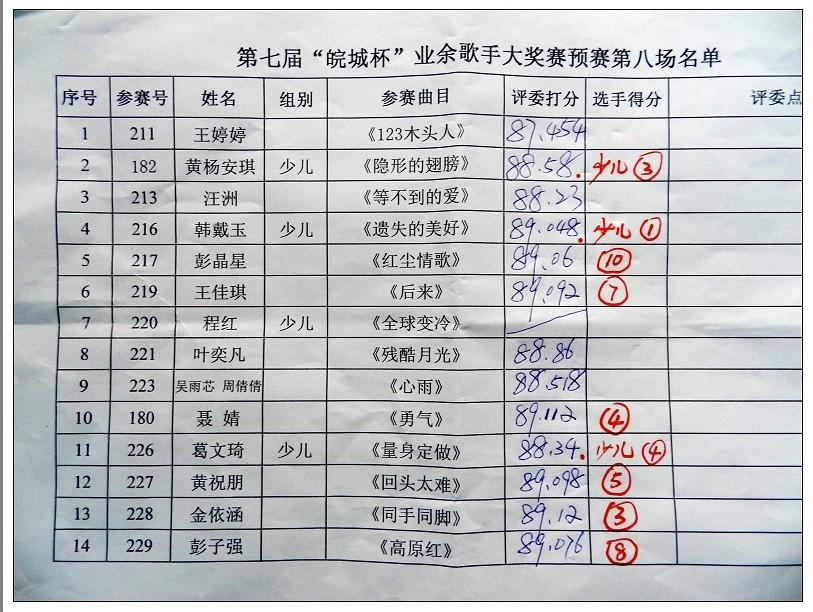 第七届“皖城杯”业余歌手大奖赛预赛第八场名单
序号 参赛号 姓名 组别 参赛曲目 评委打分 选手得分 评委点
1 211 王婷婷 《123木头人》 87.454
2 182 黄杨安琪 少儿 《隐形的翅膀》 88.58. 少儿③
3 213 汪洲 《等不到的爱》 88.23
4 216 韩戴玉 少儿 《遗失的美好》 89.048. 少儿①
5 217 彭晶星 《红尘情歌》 89.06 ⑩
6 219 王佳琪 《后来》 89.092 ⑦
7 220 程红 少儿 《全球变冷》
8 221 叶奕凡 《残酷月光》 88.86
9 223 吴雨芯 周倩倩 《心雨》 88.518
10 180 聂 婧 《勇气》 89.112 ④
11 226 葛文琦 少儿 《量身定做》 88.34. 少儿④
12 227 黄祝朋 《回头太难》 89.098 ⑤
13 228 金依涵 《同手同脚》 89.12 ③
14 229 彭子强 《高原红》 89.076 ⑧